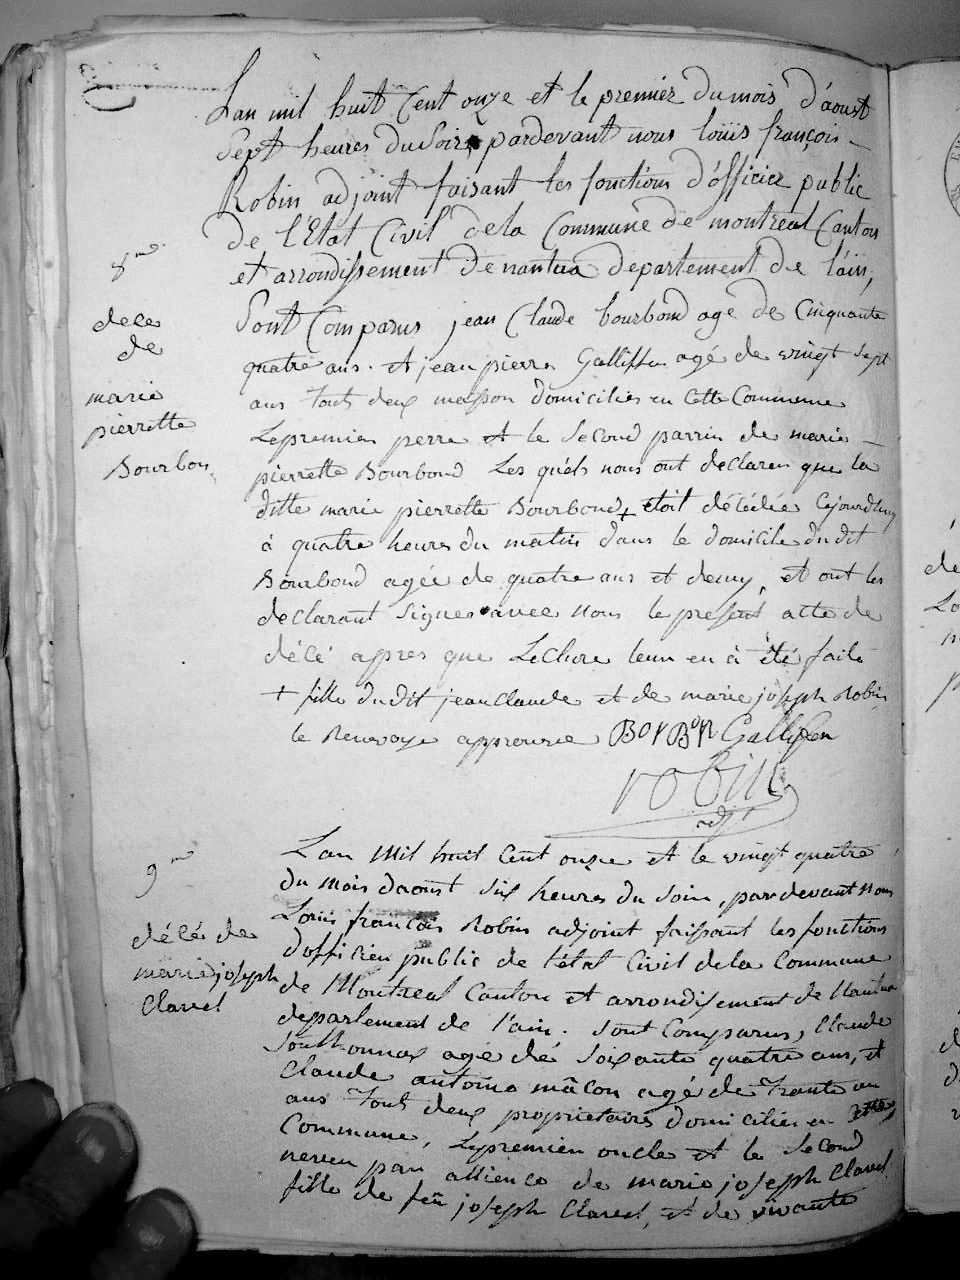 8me
décé
de
marie
pierrette
Bourbon
Lan mil huit Cent onze et le premier du mois d'aoust
Sept heures du Soir, pardevant nous louis françois
Robin adjoint faisant les fonctions d'officier public
de l'Etat Civil de la Commune de montreal Canton
et arrondissement de nantua departement de l'ain,
Sont Comparus jean Claude bourbond age de Cinquante
quatre ans. et jean pierre Galliffen agé de vingt Sept
ans tout deux masson domicilies en Cette Commune
Lepremier perre et le Second parrin de marie
pierrette Bourbond Les quels nous ont declaren que la
ditte marie pierrette Bourbond + étoit décédée Cejourdhuy
à quatre heures du matin dans le domicile du dit
Bourbond agée de quatre ans et demy, et ont les
declarant Signes avec nous le present atte de
décé appres que Lecture leur en à été faite
+ fille du dit jean claude et de marie joseph Robin
le Renvoye approuvee BorBon Galliffen
robin
adjt
9me
décé de
marie joseph
Clavel
Lan Mil huit Cent onze et le vingt quatre
du mois daoust six heures du Soir, pardevant nous
Louis françois Robin adjoint faissant les fonctions
dofficier public de l'état Civil de la Commune
de Montreal Canton et arrondissement de Nantua
departement de l'ain. Sont Comparus, Claude
Southonnax age dé Soixante quatre ans, et
Claude antoine mâcon agé de Trante un
ans Tout deux proprietaires domicilies en
Commune, Lepremier oncle et le Second
neveu par allience de marie joseph Clavel
fille de feu joseph Clavel, et de vivante